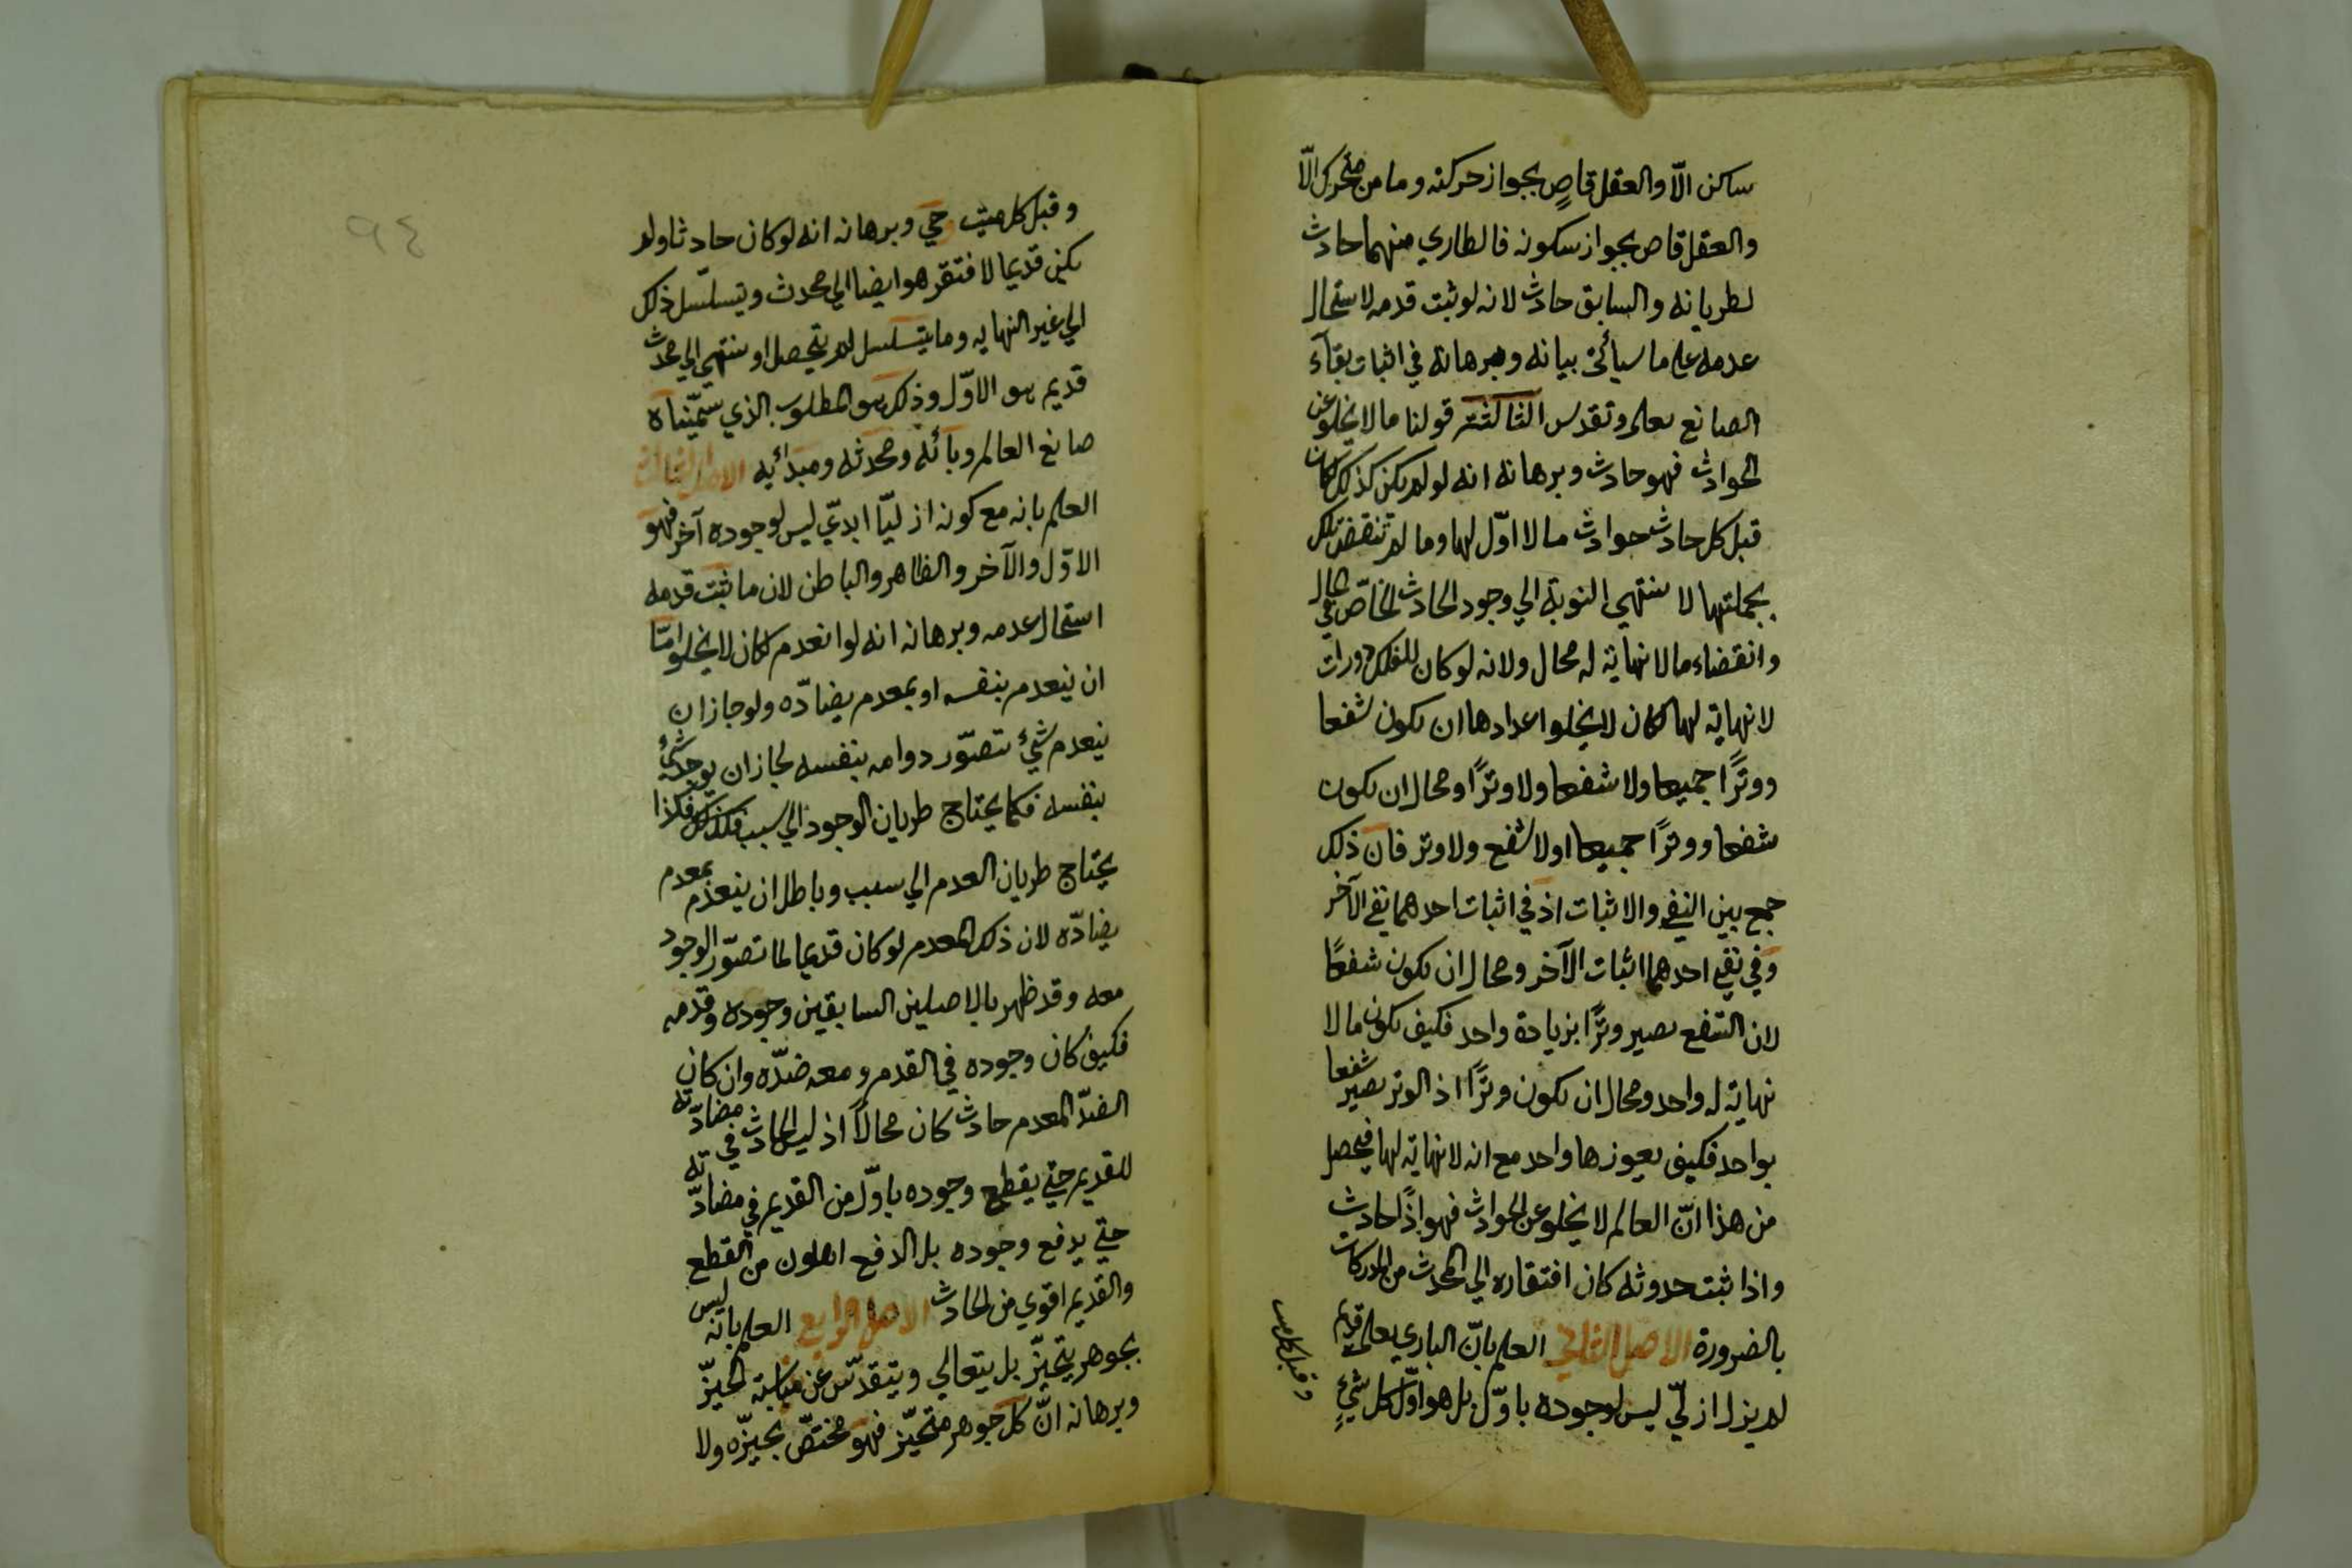 ساكن الّا والعقل قاصٍ بجواز حركته وما من متحرك الّا
والعقل قاص بجواز سكونه فالطاري منهما حادث
لطريانه والسابق حادث لانه لو ثبت قدمه لاستحال
عدمه على ما سيأتي بيانه وبرهانه في اثبات بقآء
الصانع تعلى وتقدس الثالثة قولنا ما لا يخلو عن
الحوادث فهو حادث وبرهانه انه لو لم يكن كذلك لكان
قبل كل حادث حوادث ما لا اوّل لها وما لم تنقض تلك
بجملتها لا ينتهي النوبة الي وجود الحادث الخاصّ في الحال
وانقضاء ما لا نهاية له محال ولانه لو كان للفلك دورات
لا نهاية لها لكان لا يخلوا عدادها ان يكون شفعا
ووترًا جميعا ولا شفعا ولا وترًا ومحال ان يكون
شفعا ووترًا جميعا اولا شفع ولا وتر فان ذلك
جمع بين النفي والاثبات اذ في اثبات احدهما نفي الآخر
وفي نفي احدهما اثبات الآخر ومحال ان يكون شفعًا
لان الشفع يصير وترًا بزيادة واحد فكيف يكون ما لا
نهاية له واحد ومحال ان يكون وترًا اذ الوتر يصير شفعا
بواحد فكيف يعوزها واحد مع انه لا نهاية لها فيحصل
من هذا انّ العالم لا يخلو عن الحوادث فهو اذًا حادث
واذا ثبت حدوثه كان افتقاره الي المحدث من المدركات
بالضرورة الاصل الثاني العلم بانّ الباري تعلى قديم
لم يزل ازليّ ليس لوجوده باوّل بل هو اوّل كل شيءٍ
وقبل كل ميت
٩٤
وقبل كل ميت وحي وبرهانه انه لو كان حادثا ولم
يكن قديما لافتقر هو ايضا الي محدث ويتسلسل ذلك
الي غير النهايه وما يتسلسل لم يتحصل او ينتهي الي محدث
قديم هو الاوّل وذلك هو المطلوب الذي سمّيناه
صانع العالم وبائه ومحدثه ومبدائه الاصل الثالث
العلم بانه مع كونه ازليّا ابديّ ليس لوجوده آخر فهو
الاوّل والآخر والظاهر والباطن لان ما ثبت قدمه
استحال عدمه وبرهانه انه لو انعدم لكان لا يخلو امّا
ان ينعدم بنفسه او بمعدم يضادّه ولو جاز ان
ينعدم شيءٌ تتصوّر دوامه بنفسه لجاز ان يوجد شيءٌ
بنفسه فكما يحتاج طريان الوجود الي سبب فكذلك فكذا
يحتاج طريان العدم الي سبب وباطل ان ينعدم بمعدم
يضادّه لان ذلك المعدم لو كان قديما لما تصوّر الوجود
معه وقد ظهر بالاصلين السابقين وجوده وقدمه
فكيف كان وجوده في القدم ومعه ضدّه وان كان
الضدّ المعدم حادث كان محالًا اذ ليس الحادث في مضادّته
للقديم حتي يقطع وجوده باوّل من القديم في مضادّته
حتي يدفع وجوده بل الدفع اهلون من القطع
والقديم اقوي من الحادث الاصل الرابع العلم بانّه ليس
بجوهر يتحيّز بل يتعالي ويتقدّس عن مناسبة الحيّز
وبرهانه انّ كل جوهر متحيّز فهو مختصّ بحيّزه ولا